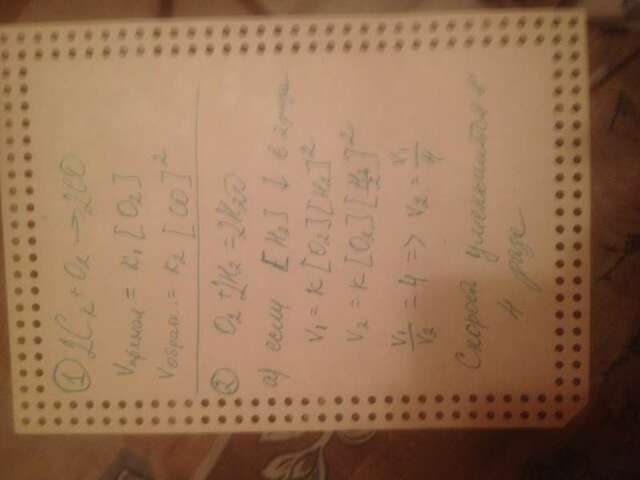 ① 2Cк + O₂ → 2CO
Vпрямая = к₁ [O₂]
Vобратн. = к₂ [CO]²
② O₂ + 2H₂ = 2H₂O
а) если [H₂] ↓ в 2 раза
V₁ = к [O₂] [H₂]²
V₂ = к [O₂] [H₂/2]²
V₁/V₂ = 4 => V₂ = V₁/4
Скорость уменьшится в
4 раза